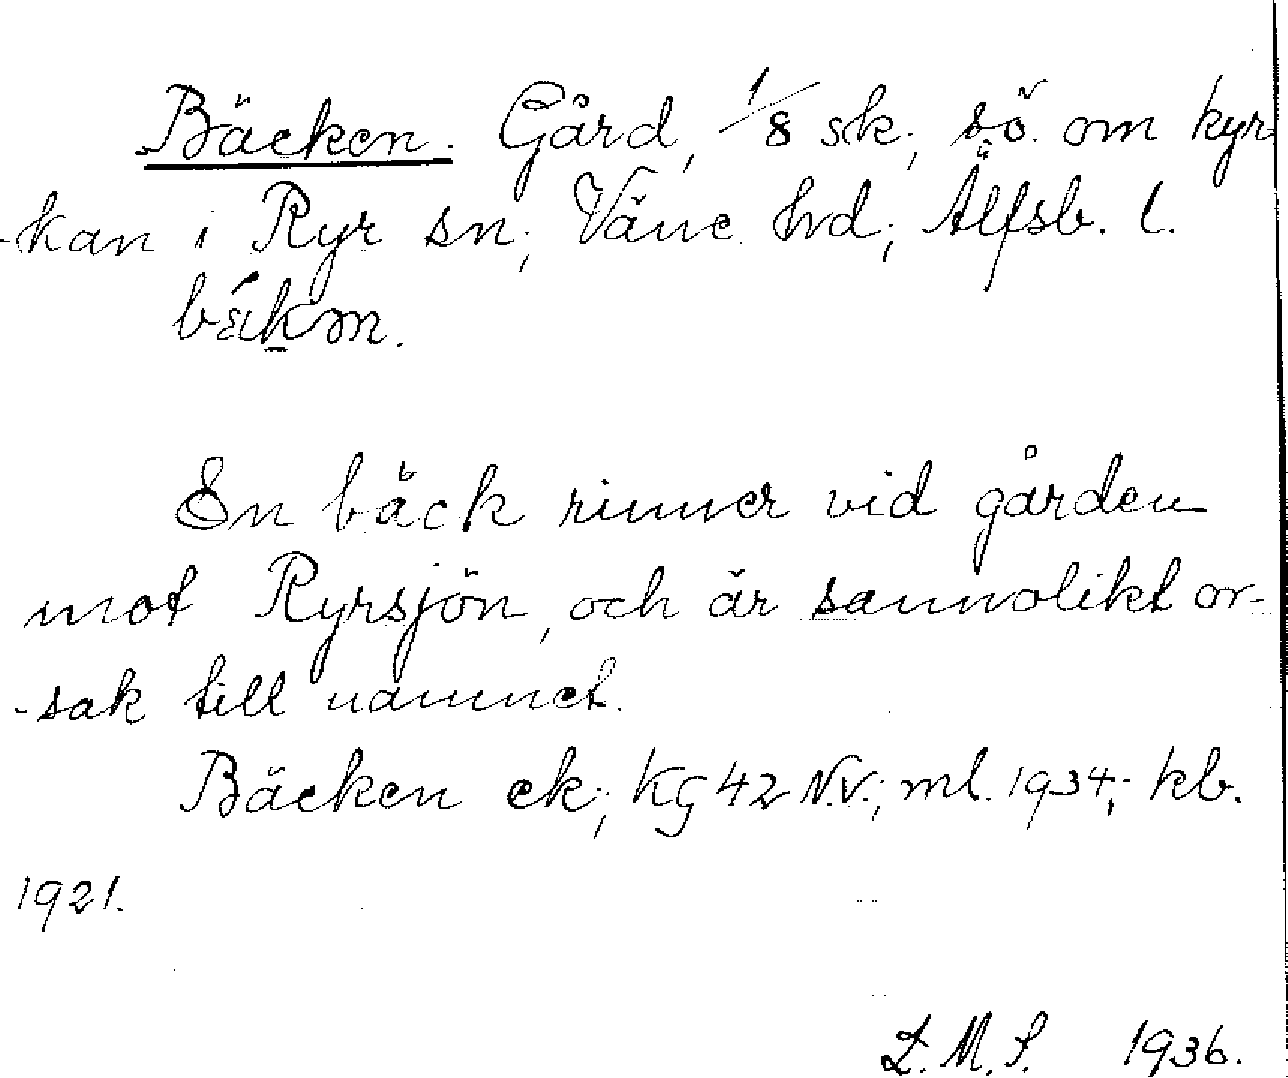 Bäcken. Gård, 1/8 sk; sö. om kyr
-kan i Ryr sn; Väne hrd; Älfsb. l.
En bäck rinner vid gården
mot Ryrsjön, och är sannolikt or-
-sak till namnet.
Bäcken ek; KG 42 N.V.; ml. 1934; kb.
1921.
L.M.S. 1936.